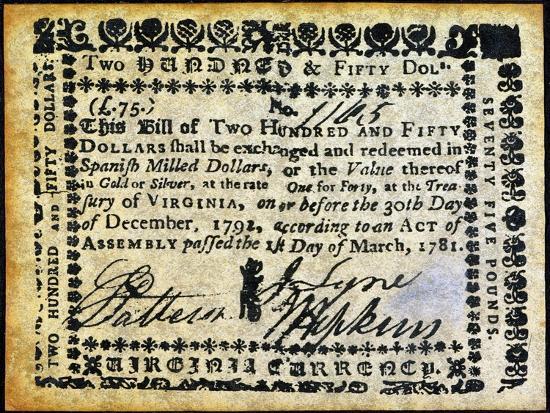 Two HUNDNED & FIFTY DOLˢ.
(£.75.) No. 1165
This Bill of Two HUNDRED AND FIFTY
DOLLARS ſhall be exchanged and redeemed in
Spaniſh Milled Dollars, or the Value thereof
in Gold or Silver, at the rate One for Forty, at the Trea-
ſury of VIRGINIA, on or before the 30th Day
of December, 1792, according to an ACT of
ASSEMBLY paſſed the 1ſt Day of March, 1781.
J Lyne
Hopkins
VIRGINIA CURRENCY.
TWO HUNDRED AND FIFTY DOLLARS.
SEVENTY FIVE POUNDS.